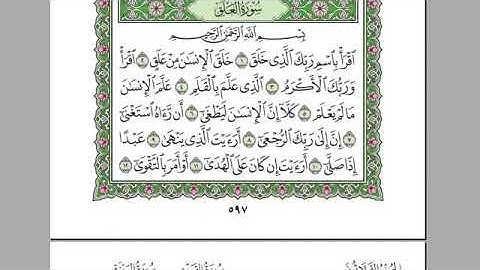 سُورَةُ العَلَقِ
بِسْمِ اللَّهِ الرَّحْمَٰنِ الرَّحِيمِ
ٱقْرَأْ بِٱسْمِ رَبِّكَ ٱلَّذِى خَلَقَ ١ خَلَقَ ٱلْإِنسَٰنَ مِنْ عَلَقٍ ٢ ٱقْرَأْ
وَرَبُّكَ ٱلْأَكْرَمُ ٣ ٱلَّذِى عَلَّمَ بِٱلْقَلَمِ ٤ عَلَّمَ ٱلْإِنسَٰنَ
مَا لَمْ يَعْلَمْ ٥ كَلَّآ إِنَّ ٱلْإِنسَٰنَ لَيَطْغَىٰٓ ٦ أَن رَّءَاهُ ٱسْتَغْنَىٰٓ
٧ إِنَّ إِلَىٰ رَبِّكَ ٱلرُّجْعَىٰٓ ٨ أَرَءَيْتَ ٱلَّذِى يَنْهَىٰ ٩ عَبْدًا
إِذَا صَلَّىٰٓ ١٠ أَرَءَيْتَ إِن كَانَ عَلَى ٱلْهُدَىٰٓ ١١ أَوْ أَمَرَ بِٱلتَّقْوَىٰٓ ١٢
٥٩٧